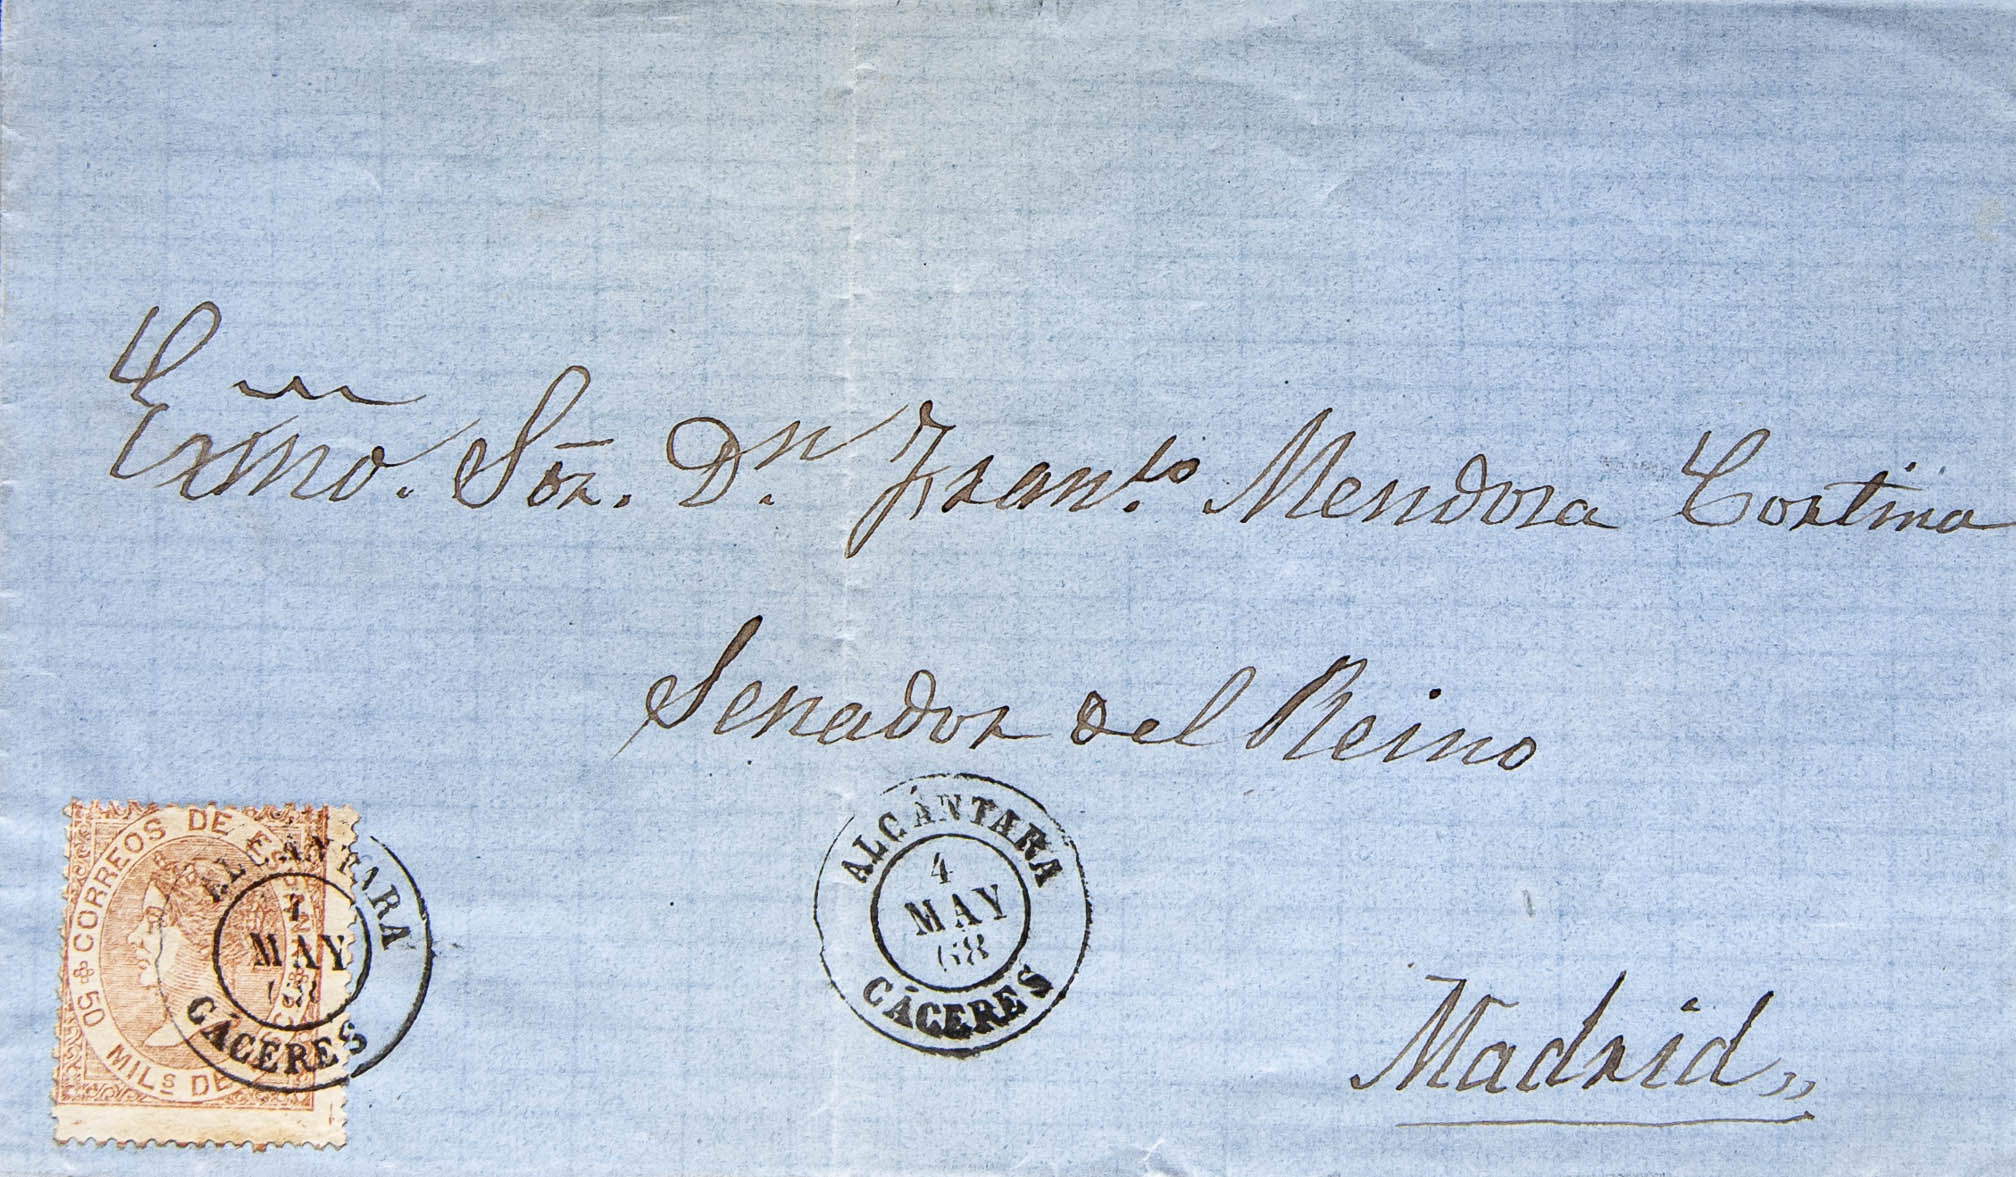 Exmo. Sor. Dn. Franco. Mendoza Cortina
Senador del Reino
ALCÁNTARA
4
MAY
68
CÁCERES
Madrid
CORREOS DE ES
50 MILS DE
ALCÁNTARA
4
MAY
68
CÁCERES